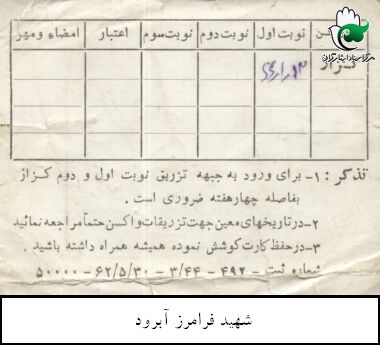 ن نوبت اول نوبت دوم نوبت سوم اعتبار امضاء ومهر
کزاز
تذکر : ۱- برای ورود به جبهه تزریق نوبت اول و دوم کزاز
بفاصله چهارهفته ضروری است .
۲- درتاریخهای معین جهت تزریقات واکسن حتماً مراجعه نمائید
۳- درحفظ کارت کوشش نموده همیشه همراه داشته باشید .
شماره ثبت - ۴۹۲ - ۳/۴۴ - ۶۲/۵/۳۰ - ۵۰۰۰۰
شهید فرامرز آبرود